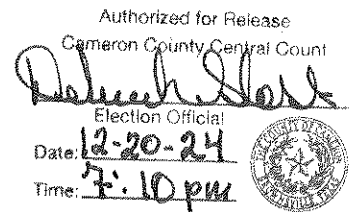 Authorized for Release
Cameron County Central Count
Election Official
Date: 12-20-24
Time: 7:10 pm